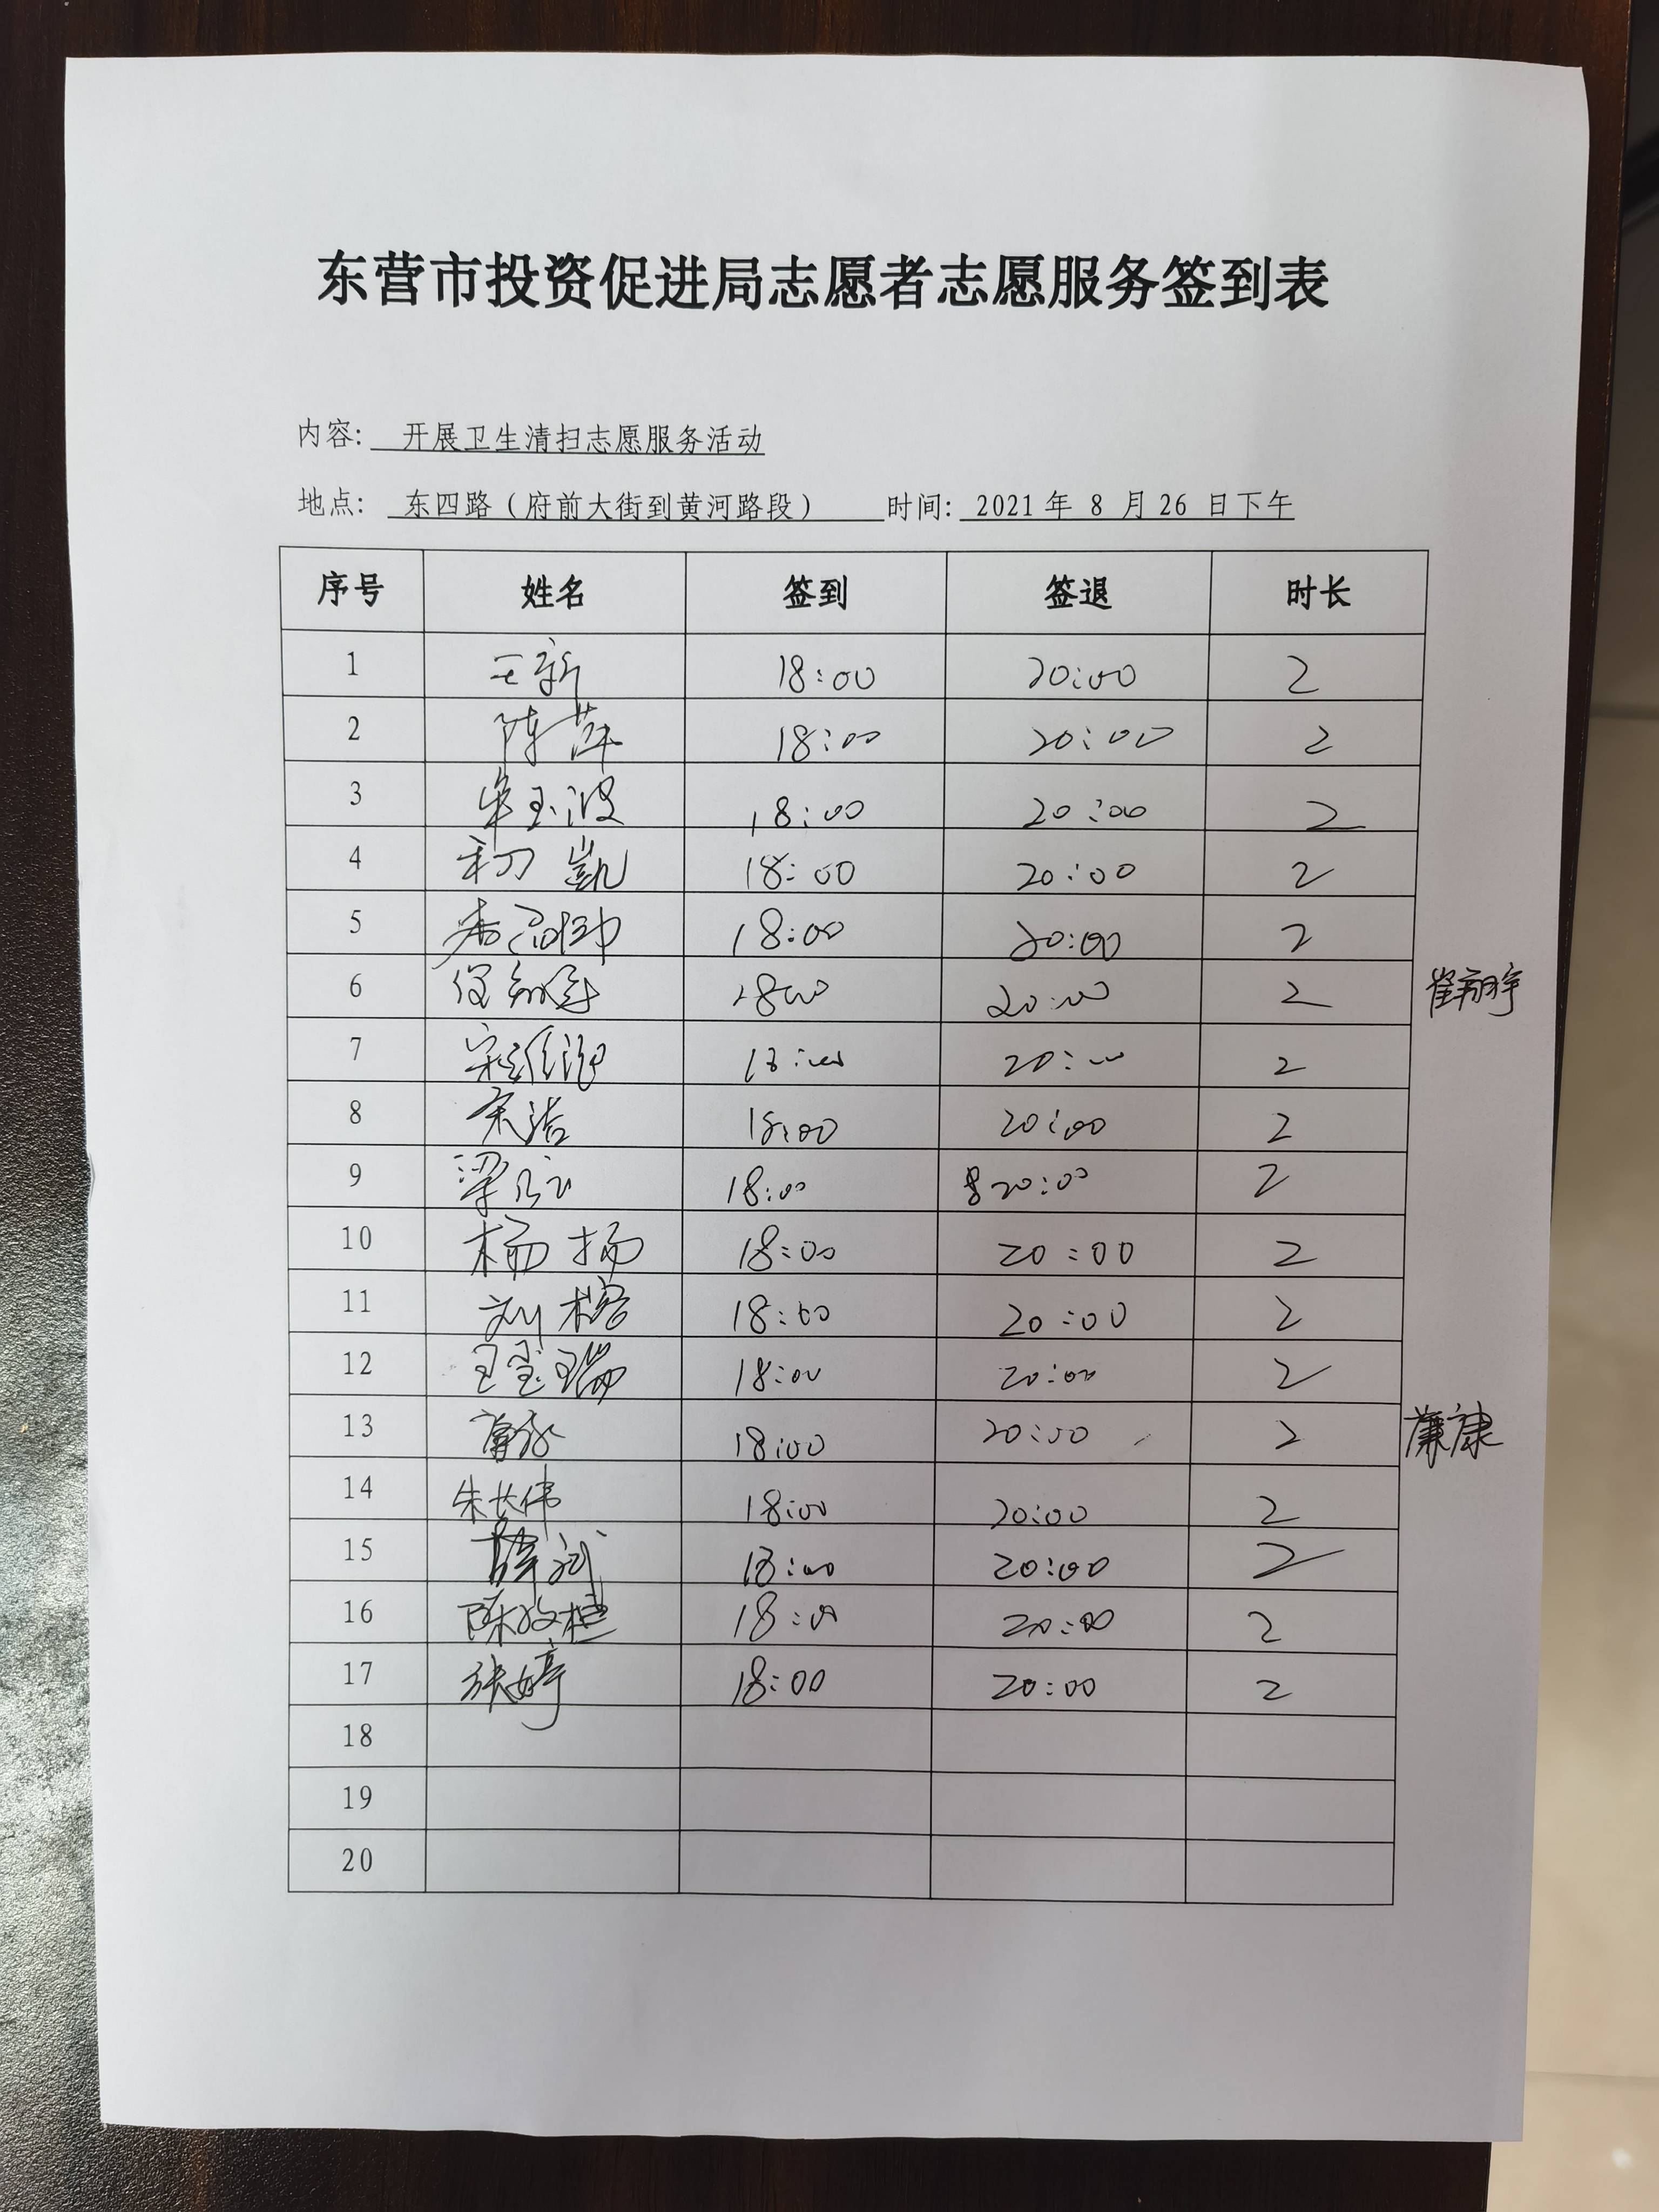 东营市投资促进局志愿者志愿服务签到表
内容: 开展卫生清扫志愿服务活动
地点: 东四路（府前大街到黄河路段） 时间: 2021年 8 月 26 日下午
序号 姓名 签到 签退 时长
1 王新 18:00 20:00 2
2 陈萍 18:00 20:00 2
3 牟玉波 18:00 20:00 2
4 初凯 18:00 20:00 2
5 18:00 20:00 2
6 1800 20:00 2 崔翔宇
7 宋维 18:00 20:00 2
8 宋洁 18:00 20:00 2
9 梁 18:00 20:00 2
10 杨扬 18:00 20:00 2
11 刘榕 18:00 20:00 2
12 王宝瑞 18:00 20:00 2
13 18:00 20:00 2 廉康
14 朱长伟 18:00 20:00 2
15 薛斌 18:00 20:00 2
16 陈 18:00 20:00 2
17 张婷 18:00 20:00 2
18
19
20